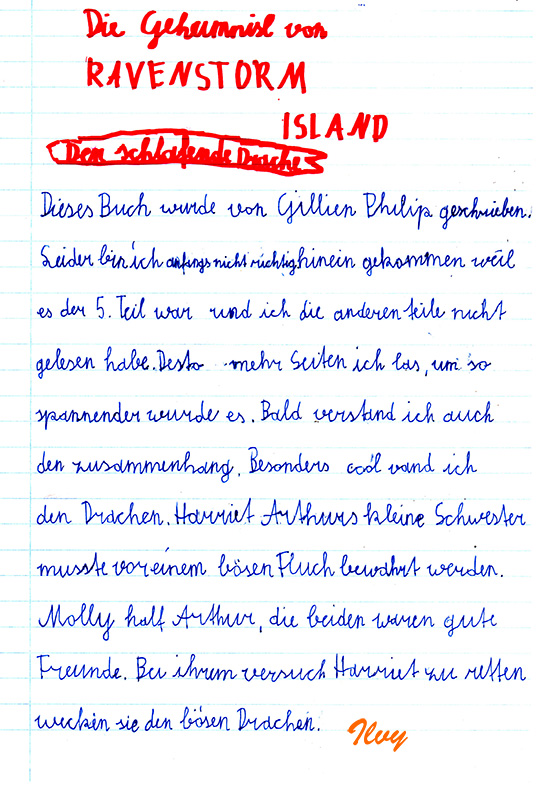 Die Geheimnise von
RAVENSTORM
ISLAND
Der schlafende Drache
Dieses Buch wurde von Gillien Philip geschrieben.
Leider bin ich anfangs nicht richtig hinein gekommen weil
es der 5. Teil war und ich die anderen teile nicht
gelesen habe. Desto mehr Seiten ich las, um so
spannender wurde es. Bald verstand ich auch
den zusammenhang. Besonders cool vand ich
den Drachen. Harriet Arthurs kleine Schwester
musste vor einem bösen Fluch bewahrt werden.
Molly half Arthur, die beiden waren gute
Freunde. Bei ihrem versuch Harriet zu retten
weckten sie den bösen Drachen.
Ilvy